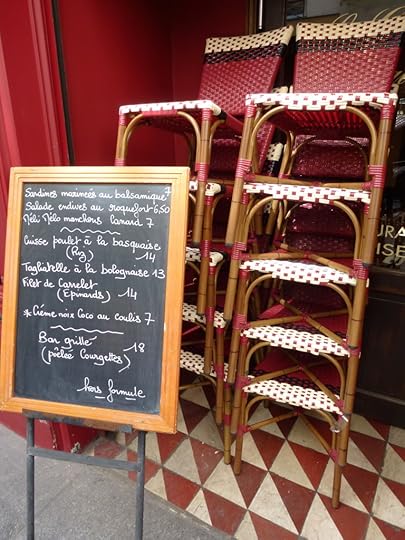 Sardines marinées au balsamique 7
Salade endives au roquefort 6,50
Méli Mélo manchons Canard 7
Cuisse poulet à la basquaise
(Riz) 14
Tagliatelle à la bolognaise 13
Filet de Carrelet
(Epinards) 14
*Crème noix Coco au Coulis 7
Bar grillé
(poêlée Courgettes) 18
hors formule